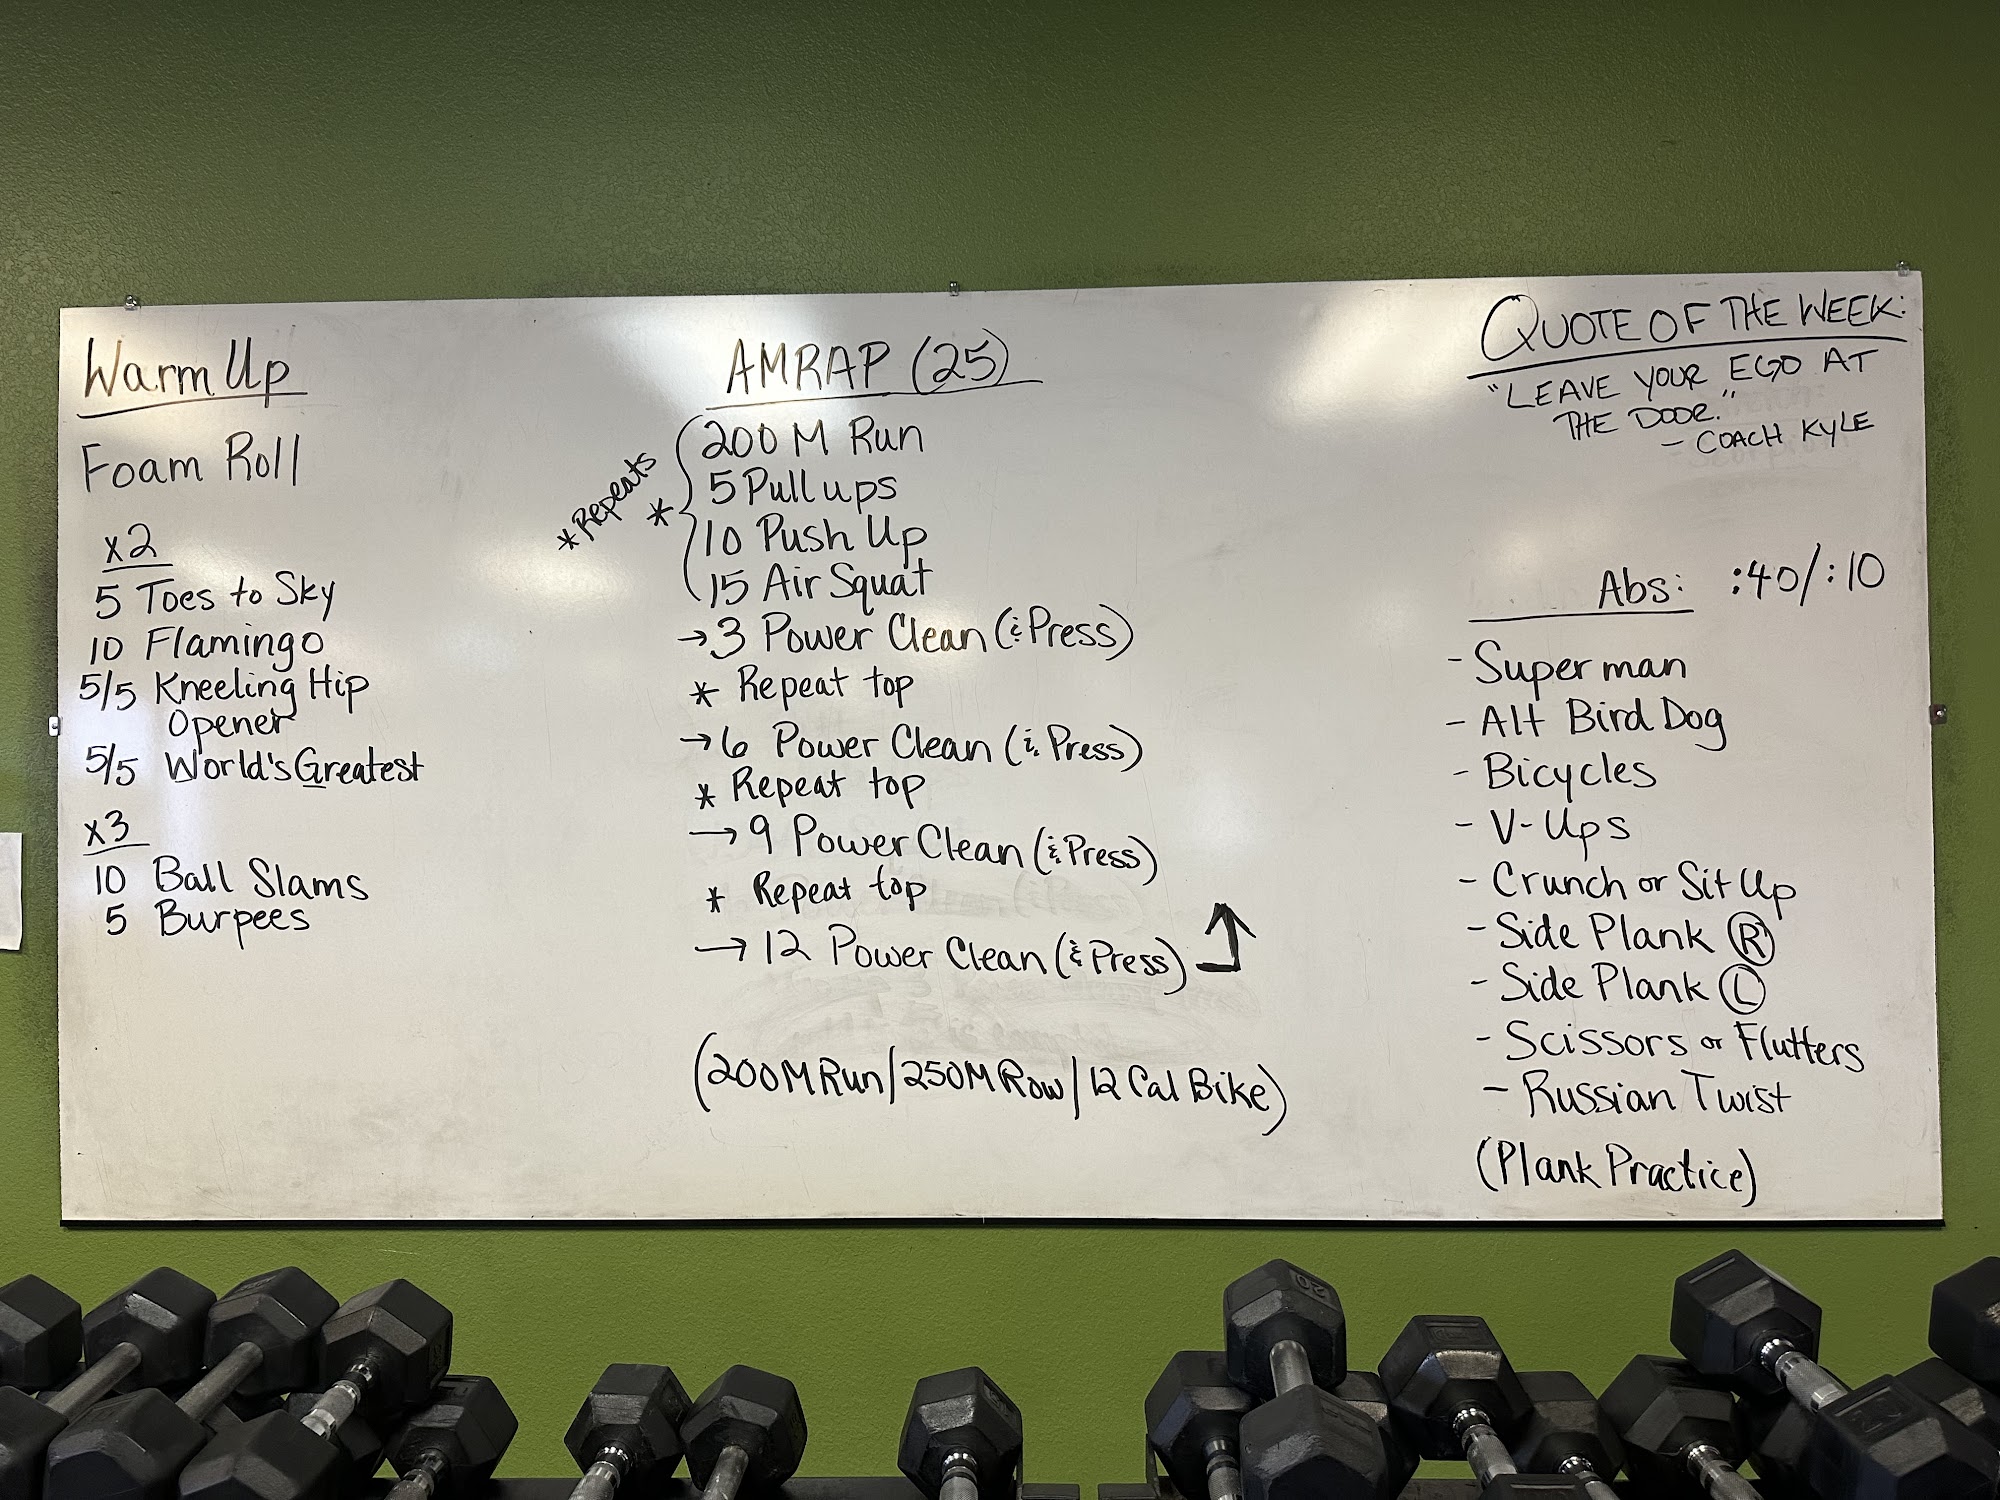 Warm Up
Foam Roll
x2
5 Toes to Sky
10 Flamingo
5/5 Kneeling Hip
Opener
5/5 World's Greatest
x3
10 Ball Slams
5 Burpees
AMRAP (25)
*Repeats *
200 M Run
5 Pull ups
10 Push Up
15 Air Squat
→ 3 Power Clean (& Press)
* Repeat top
→ 6 Power Clean (& Press)
* Repeat top
→ 9 Power Clean (& Press)
* Repeat top
→ 12 Power Clean (& Press)
(200M Run/250M Row/12 Cal Bike)
QUOTE OF THE WEEK:
"LEAVE YOUR EGO AT
THE DOOR."
- COACH KYLE
Abs: :40/:10
- Superman
- Alt Bird Dog
- Bicycles
- V-Ups
- Crunch or Sit Up
- Side Plank (R)
- Side Plank (L)
- Scissors or Flutters
- Russian Twist
(Plank Practice)
20